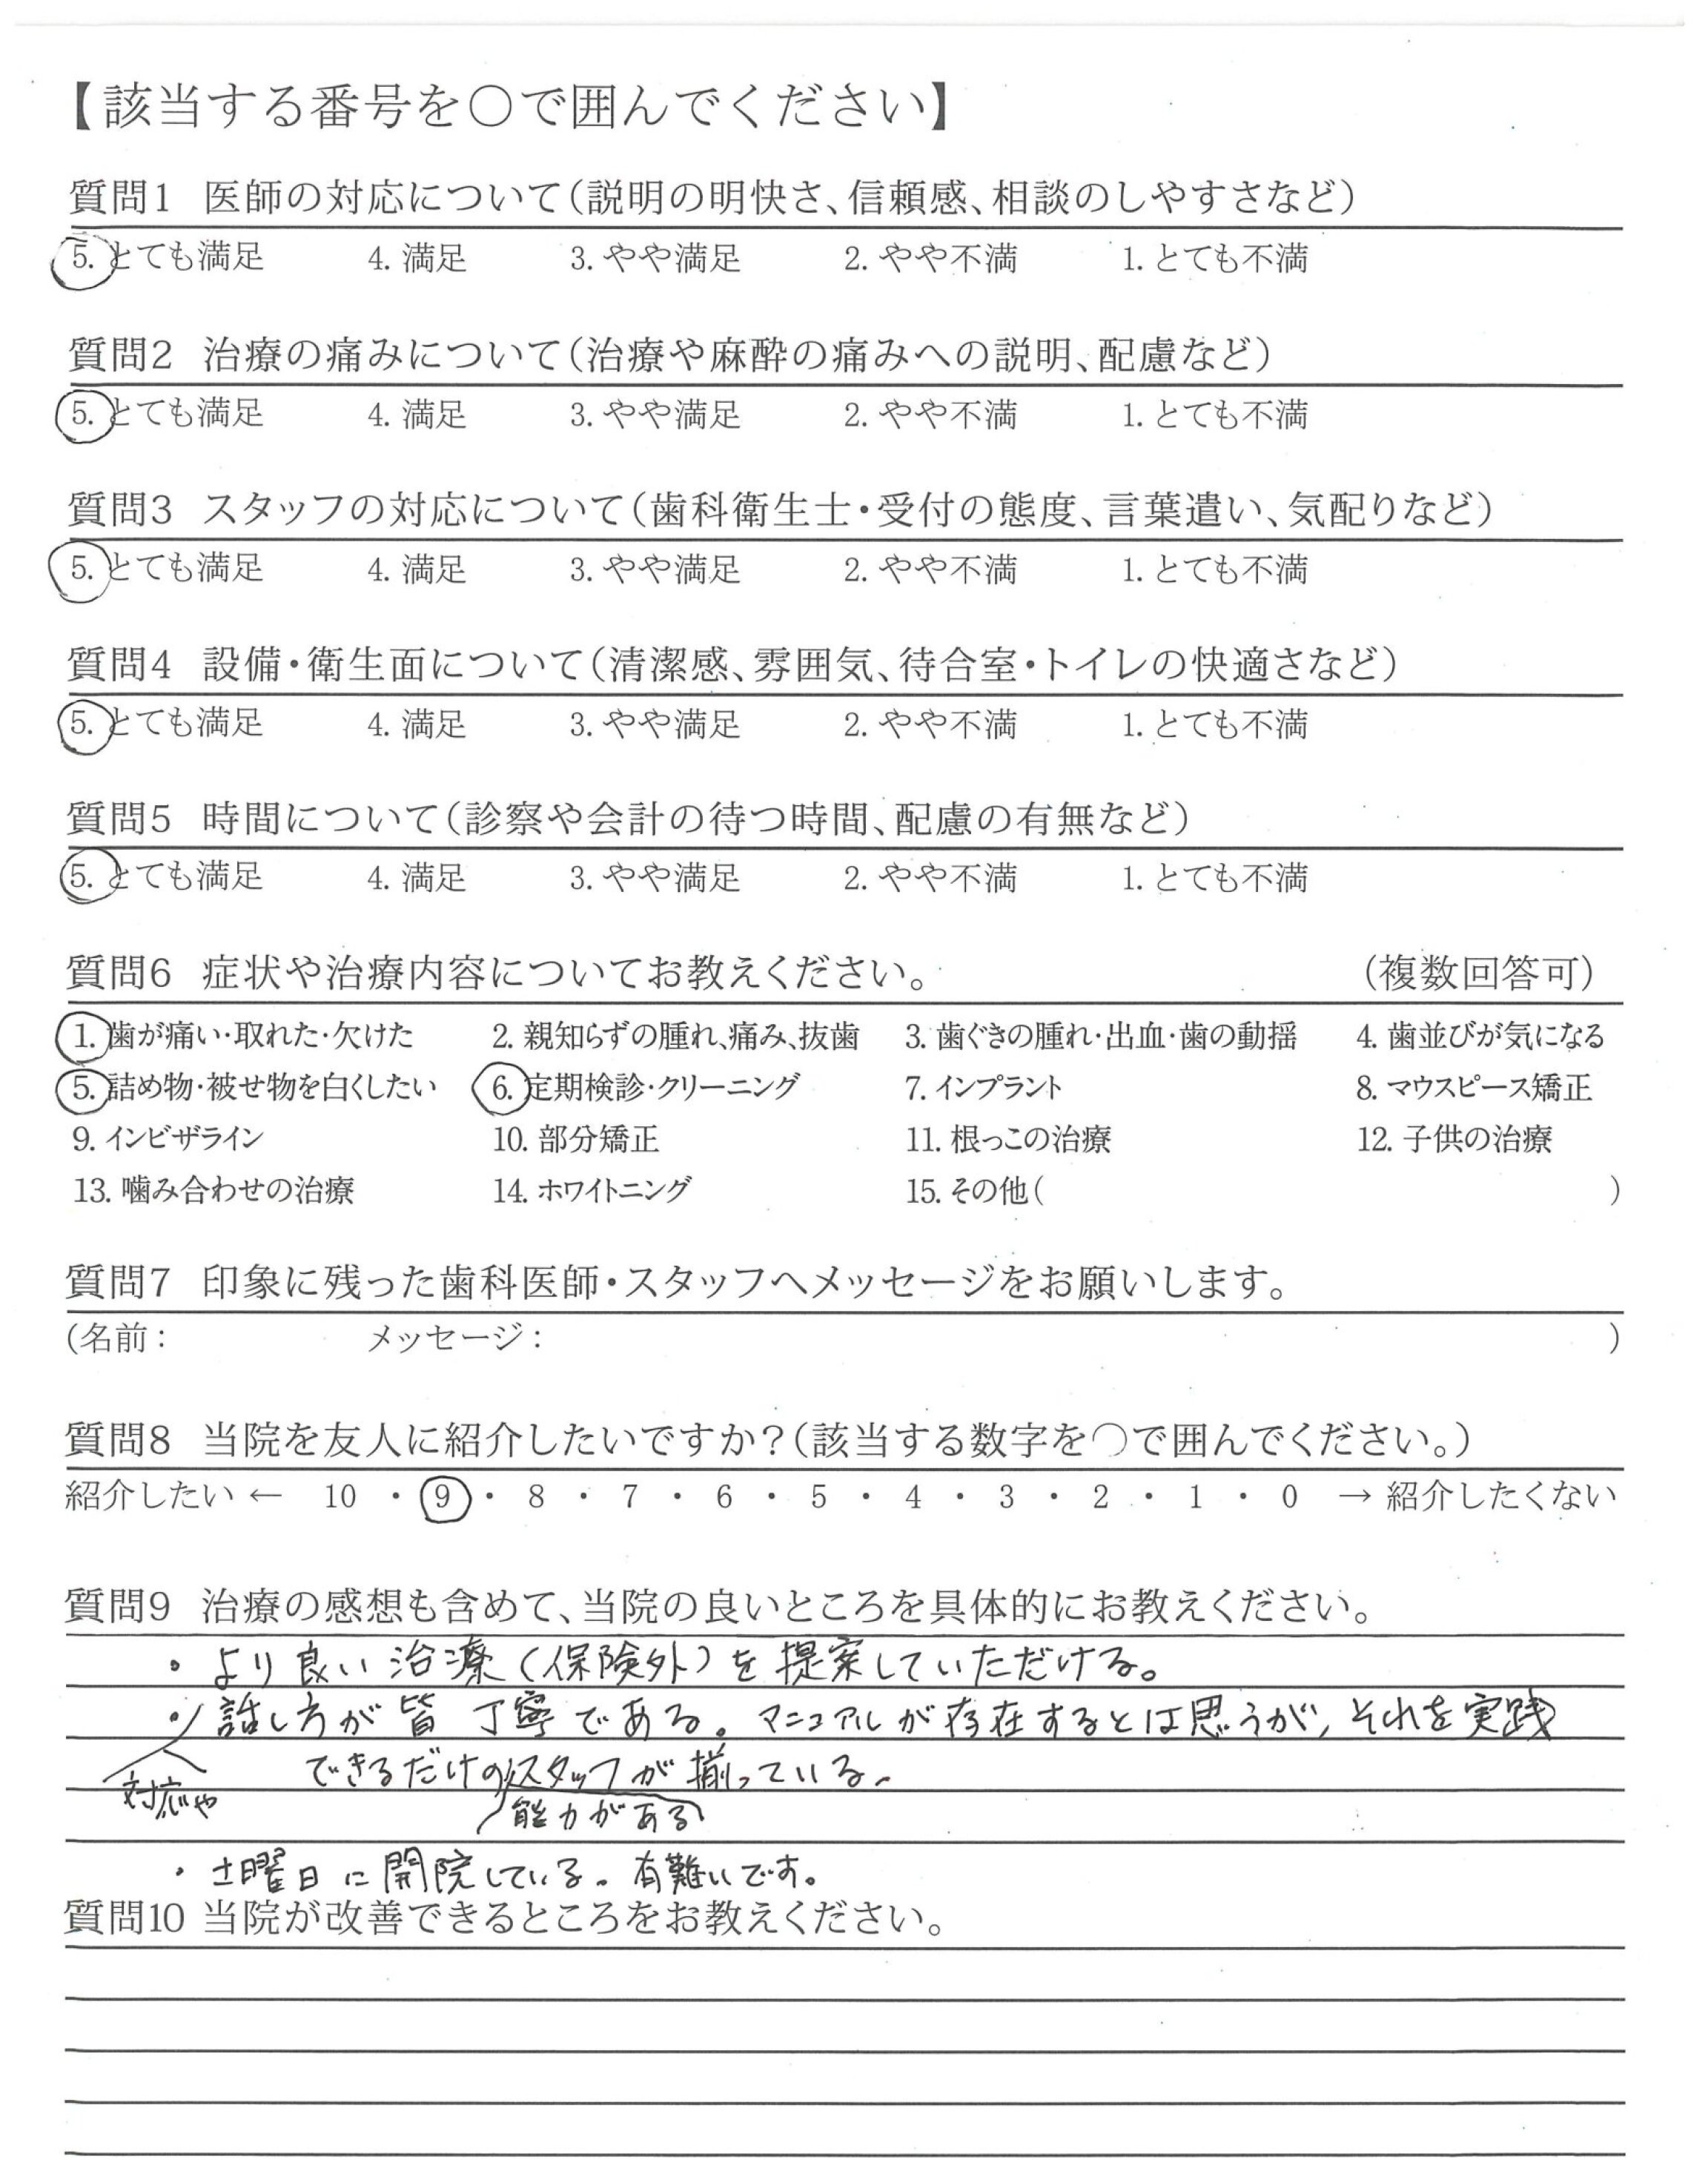 【該当する番号を○で囲んでください】
質問1 医師の対応について(説明の明快さ、信頼感、相談のしやすさなど)
5. とても満足 4. 満足 3. やや満足 2. やや不満 1. とても不満
質問2 治療の痛みについて(治療や麻酔の痛みへの説明、配慮など)
5. とても満足 4. 満足 3. やや満足 2. やや不満 1. とても不満
質問3 スタッフの対応について(歯科衛生士・受付の態度、言葉遣い、気配りなど)
5. とても満足 4. 満足 3. やや満足 2. やや不満 1. とても不満
質問4 設備・衛生面について(清潔感、雰囲気、待合室・トイレの快適さなど)
5. とても満足 4. 満足 3. やや満足 2. やや不満 1. とても不満
質問5 時間について(診察や会計の待つ時間、配慮の有無など)
5. とても満足 4. 満足 3. やや満足 2. やや不満 1. とても不満
質問6 症状や治療内容についてお教えください。 (複数回答可)
1. 歯が痛い・取れた・欠けた 2. 親知らずの腫れ、痛み、抜歯 3. 歯ぐきの腫れ・出血・歯の動揺 4. 歯並びが気になる
5. 詰め物・被せ物を白くしたい 6. 定期検診・クリーニング 7. インプラント 8. マウスピース矯正
9. インビザライン 10. 部分矯正 11. 根っこの治療 12. 子供の治療
13. 噛み合わせの治療 14. ホワイトニング 15. その他( )
質問7 印象に残った歯科医師・スタッフへメッセージをお願いします。
(名前: メッセージ: )
質問8 当院を友人に紹介したいですか?(該当する数字を○で囲んでください。)
紹介したい ← 10 ・ 9 ・ 8 ・ 7 ・ 6 ・ 5 ・ 4 ・ 3 ・ 2 ・ 1 ・ 0 → 紹介したくない
質問9 治療の感想も含めて、当院の良いところを具体的にお教えください。
・より良い治療(保険外)を提案していただける。
・話し方が皆丁寧である。マニュアルが存在するとは思うが、それを実践
できるだけのスタッフが揃っている。
対応や 能力がある
・土曜日に開院している。有難いです。
質問10 当院が改善できるところをお教えください。